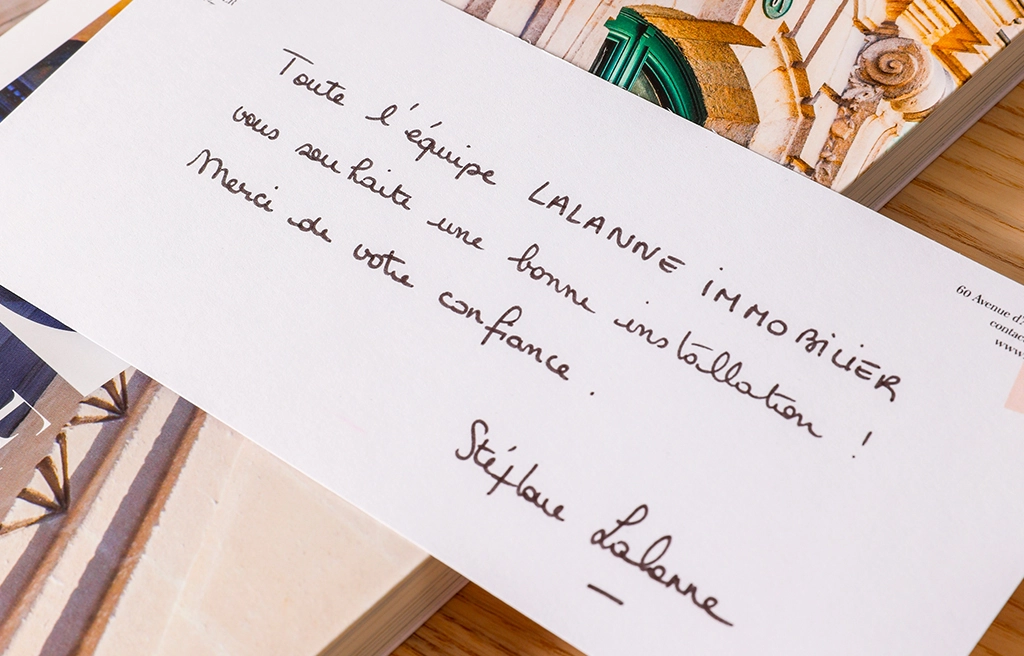 Toute l'équipe LALANNE iMMOBiLiER
vous souhaite une bonne installation !
Merci de votre confiance.
Stéphane Lalanne
60 Avenue d'
contac
www